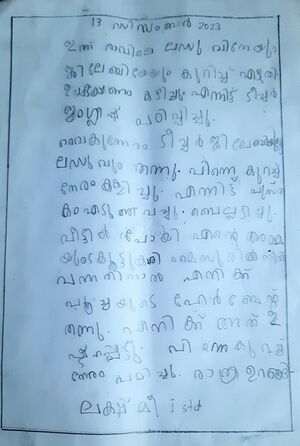 13 ഡിസംബർ 2023
ഇന്ന് രാവിലെ ലഡു വിനേയും
ജിലേബിയേയും കുറിച്ച് എഴുതി
ഉച്ചഭക്ഷണം കഴിച്ചു എന്നിട്ട് ടീച്ചർ
ഇംഗ്ലീഷ് പഠിപ്പിച്ചു.
വൈകുന്നേരം ടീച്ചർ ജിലേബിയും
ലഡുവും തന്നു. പിന്നെ കുറച്ച്
നേരം കളിച്ചു. എന്നിട്ട് പുസ്ത
കം എടുത്ത് വച്ചു. ബെല്ലടിച്ചു.
വീട്ടിൽ പോയി എന്റെ അമ്മ
യുടെ കൂട്ടുകാരി മൈസൂരിൽ നിന്ന്
വന്നതിനാൽ എനിക്ക്
പൂച്ചയുടെ ഹേർബേന്റ്
തന്നു. എനിക്ക് അത് ഇ
ഷ്ടപ്പെട്ടു. പിന്നെ കുറച്ച്
നേരം പഠിച്ചു. രാത്രി ഉറങ്ങി
ലക്ഷ്മി I std